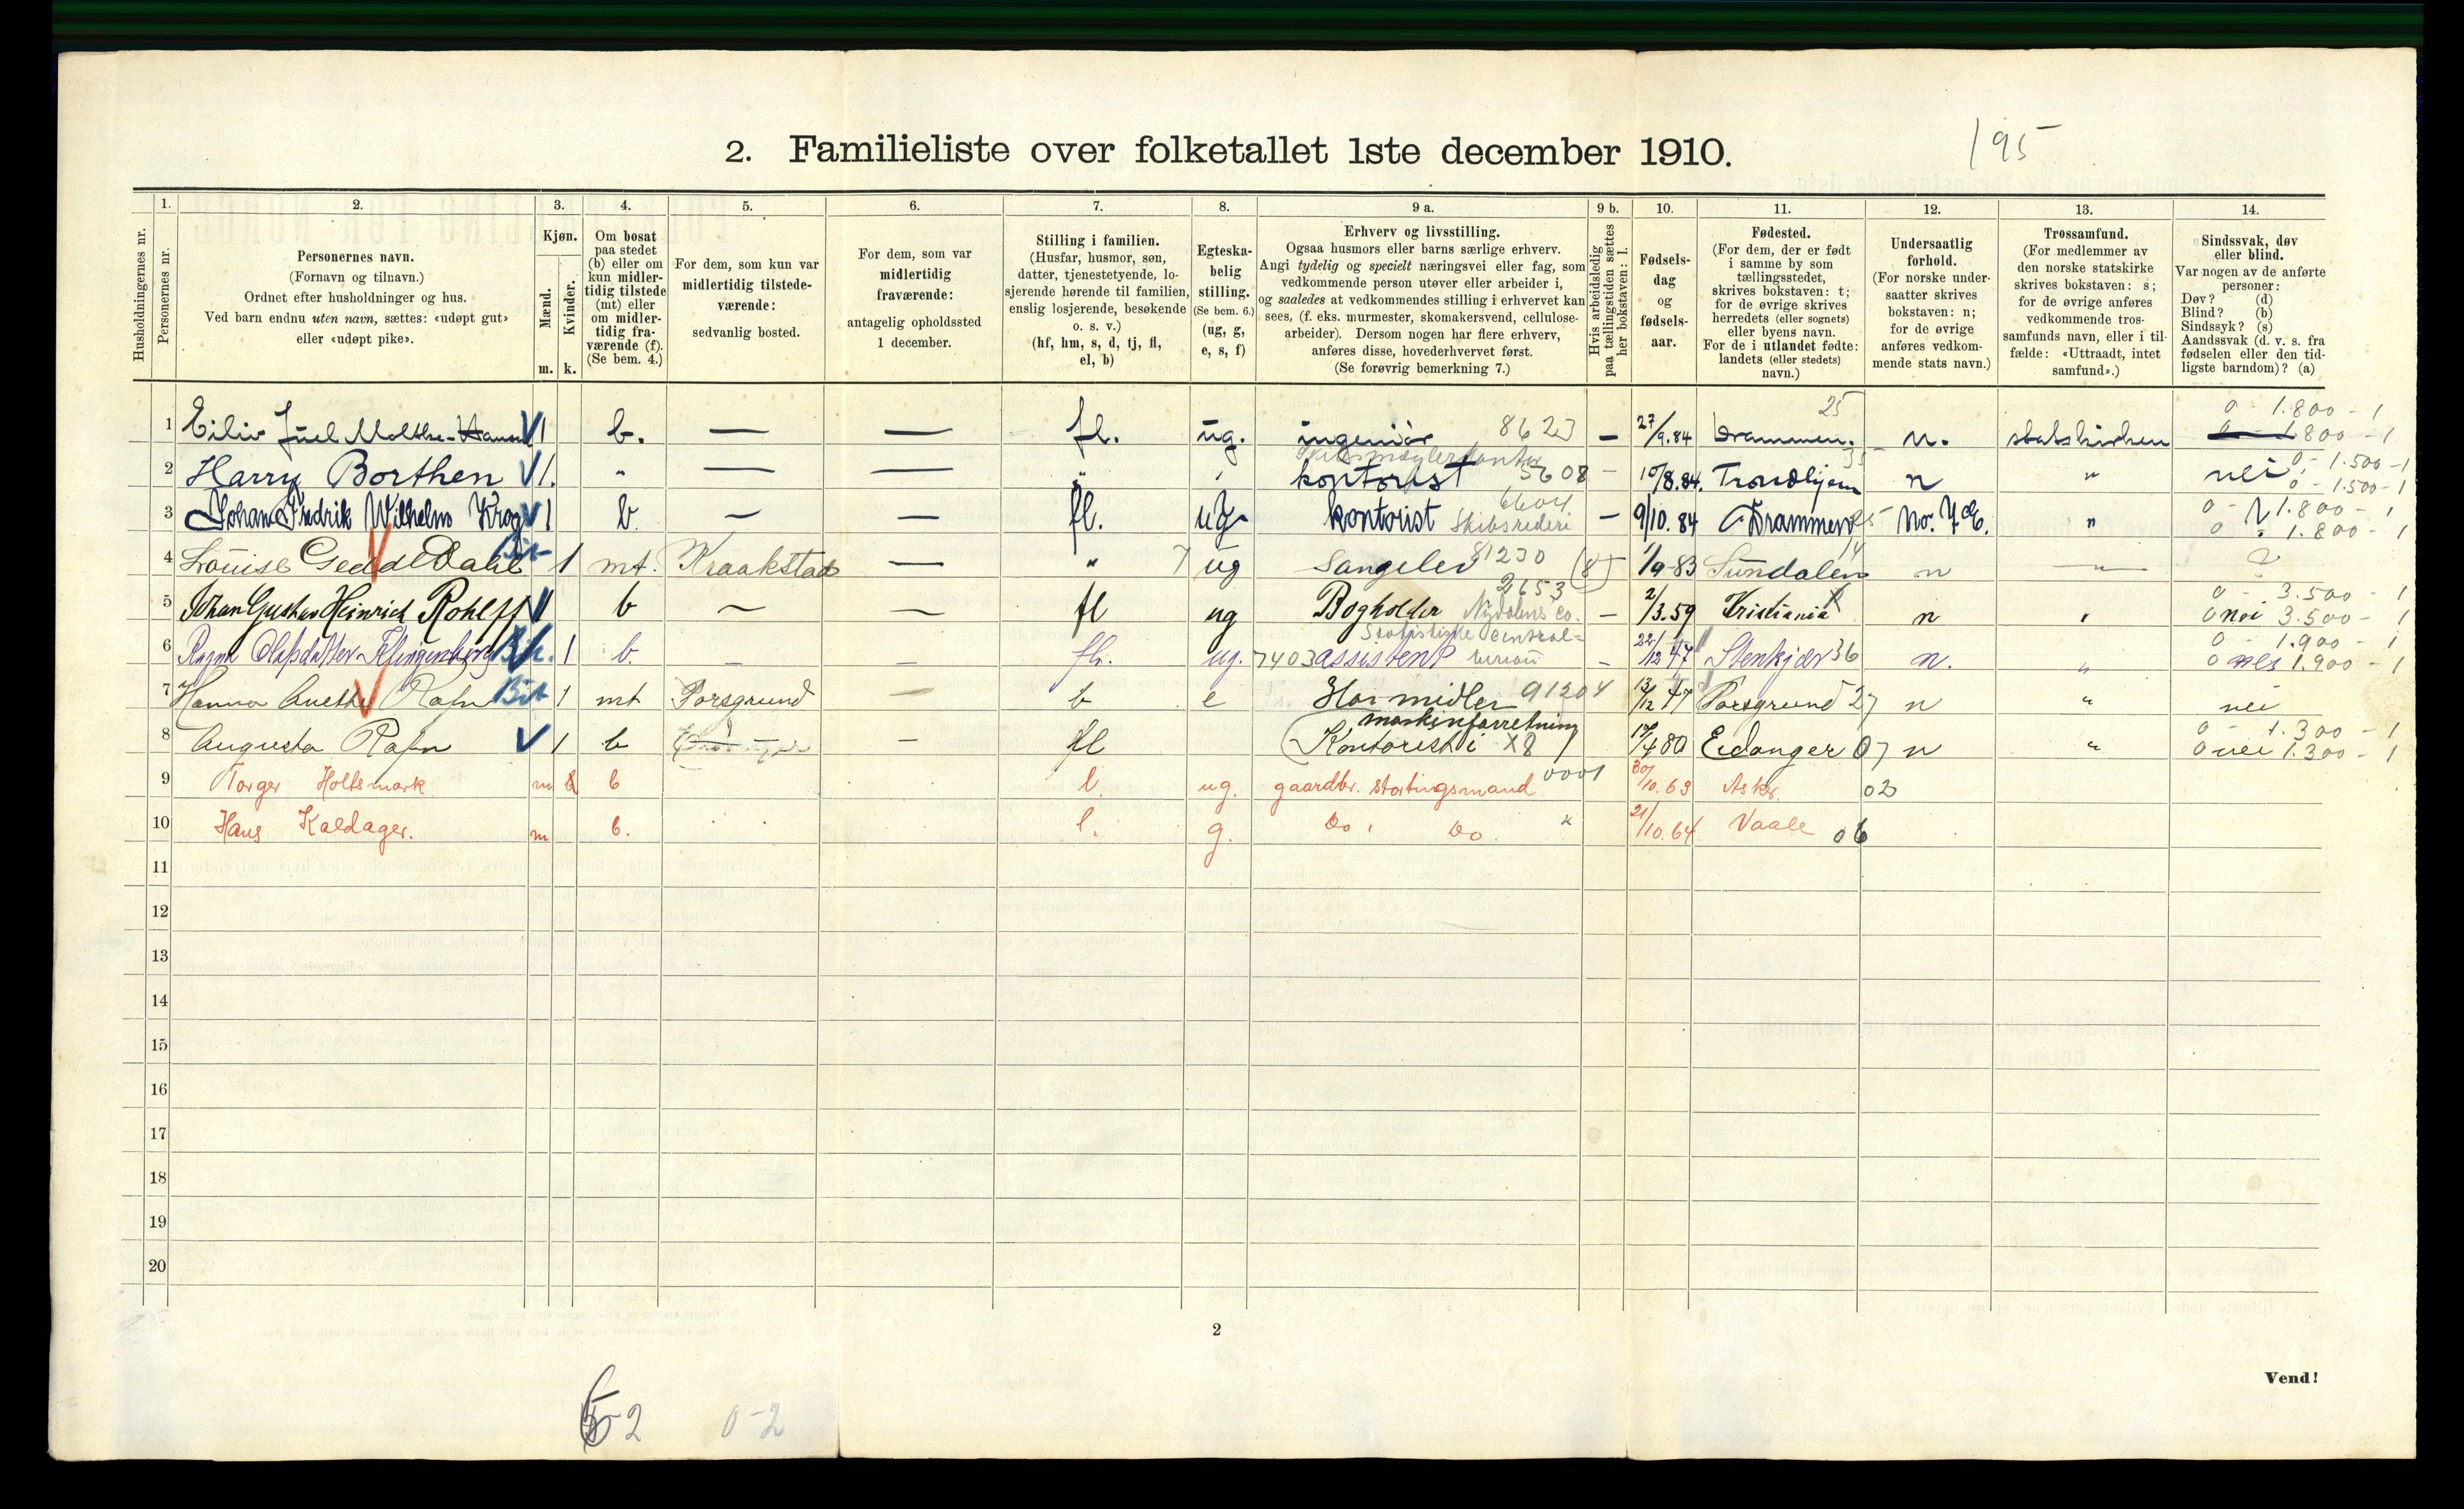 195
2. Familieliste over folketallet 1ste december 1910.
Husholdningernes nr.
1. Personernes nr.
2. Personernes navn.
(Fornavn og tilnavn.)
Ordnet efter husholdninger og hus.
Ved barn endnu uten navn, sættes: «udøpt gut»
eller «udøpt pike».
3. Kjøn.
Mænd. m.
Kvinder. k.
4. Om bosat
paa stedet
(b) eller om
kun midler-
tidig tilstede
(mt) eller
om midler-
tidig fra-
værende (f).
(Se bem. 4.)
5. For dem, som kun var
midlertidig tilstede-
værende:
sedvanlig bosted.
6. For dem, som var
midlertidig
fraværende:
antagelig opholdssted
1 december.
7. Stilling i familien.
(Husfar, husmor, søn,
datter, tjenestetyende, lo-
sjerende hørende til familien,
enslig losjerende, besøkende
o. s. v.)
(hf, hm, s, d, tj, fl,
el, b)
8. Egteska-
belig
stilling.
(Se bem. 6.)
(ug, g,
e, s, f)
9 a. Erhverv og livsstilling.
Ogsaa husmors eller barns særlige erhverv.
Angi tydelig og specielt næringsvei eller fag, som
vedkommende person utøver eller arbeider i,
og saaledes at vedkommendes stilling i erhvervet kan
sees, (f. eks. murmester, skomakersvend, cellulose-
arbeider). Dersom nogen har flere erhverv,
anføres disse, hovederhvervet først.
(Se forøvrig bemerkning 7.)
9 b. Hvis arbeidsledig
paa tællingstiden sættes
her bokstaven: l.
10. Fødsels-
dag
og
fødsels-
aar.
11. Fødested.
(For dem, der er født
i samme by som
tællingsstedet,
skrives bokstaven: t;
for de øvrige skrives
herredets (eller sognets)
eller byens navn.
For de i utlandet fødte:
landets (eller stedets)
navn.)
12. Undersaatlig
forhold.
(For norske under-
saatter skrives
bokstaven: n;
for de øvrige
anføres vedkom-
mende stats navn.)
13. Trossamfund.
(For medlemmer av
den norske statskirke
skrives bokstaven: s;
for de øvrige anføres
vedkommende tros-
samfunds navn, eller i til-
fælde: «Uttraadt, intet
samfund».)
14. Sindssvak, døv
eller blind.
Var nogen av de anførte
personer:
Døv? (d)
Blind? (b)
Sindssyk? (s)
Aandssvak (d. v. s. fra
fødselen eller den tid-
ligste barndom)? (a)
25 0 - 1.800 - 1
1 Eiliv Juel Moltke-Hansen 1 b. — — fl. ug. ingeniør 8623 — 27/9.84 Drammen. n. statskirken 1.800 - 1
Skibsmæglerkontor 35 0 - 1.500 - 1
2 Harry Borthen 1. " — — " kontorist 5608 – 10/8.84. Trondhjem n " nei 0 - 1.500 - 1
6604 0 - 1.800 - 1
3 Johan Fredrik Wilhelm Krog 1 b. — — fl. ug kontorist Skibsrederi — 9/10.84 Drammen 25 " 0 1.800 - 1
14
4 Louise Dahl 1 mt. Kraakstad — " 7 ug Sangelev 81230 (8) 1/9-83 Sundalen n "
2653 0 - 3.500 - 1
5 Johan Gustav Heinrich Rohlff 1 b — — fl ug Bogholder Nydalens Co. — 2/3.59 Kristiania n " 0 nei 3.500 - 1
Statistiske Central- 0 - 1.900 - 1
6 Ragna Olafsdatter Klingenberg 1 b. – – fl. ug. 7403 assistent bureau – 22/12 47 Stenkjær 36 n. " 0 nei 1.900 - 1
7 Hanna Anette Rafn Bit 1 mt Porsgrund — b e Har midler 91204 13/12 47 Porsgrund 27 n " nei
maskinforretning 0 - 1.300 - 1
8 Augusta Rafn 1 b – fl Kontorist i X8 17/4 80 Eidanger 07 n " 0 nei 1.300 - 1
9 Torger Holtsmark m b l. ug. gaardbr. stortingsmand 0001 30/10.63 Askr. 02
10 Hans Kaldager. m b. l. g. Do, Do. " 21/10.64 Vaale 06
11
12
13
14
15
16
17
18
19
20
2
Vend!
2 0-2